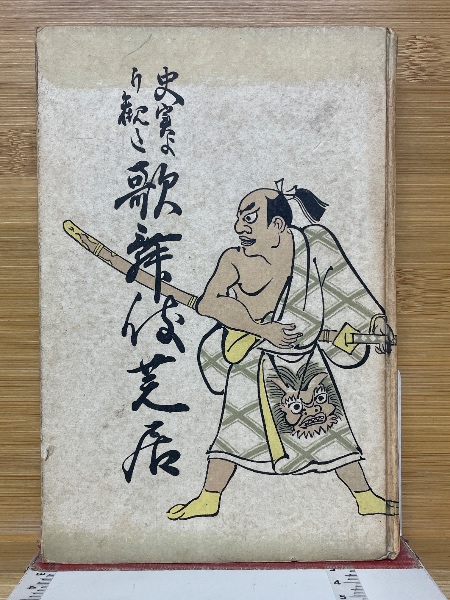 史実よ
り観た
歌舞伎芝居